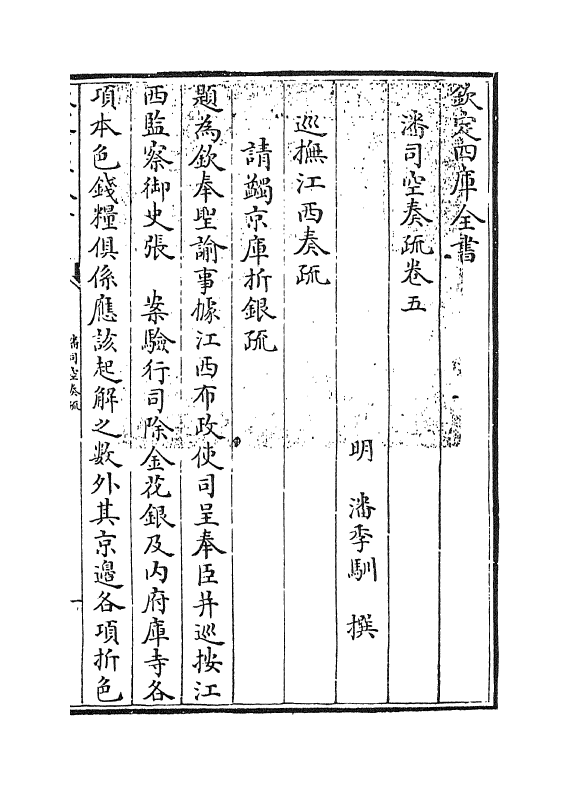 欽定四庫全書
潘司空奏疏卷五
明　潘季馴　撰
巡撫江西奏疏
請蠲京庫折銀疏
題為欽奉聖諭事據江西布政使司呈奉臣并巡按江
西監察御史張　案驗行司除金花銀及内府庫寺各
項本色錢糧俱係應該起解之數外其京邊各項折色
潘司空奏疏
一